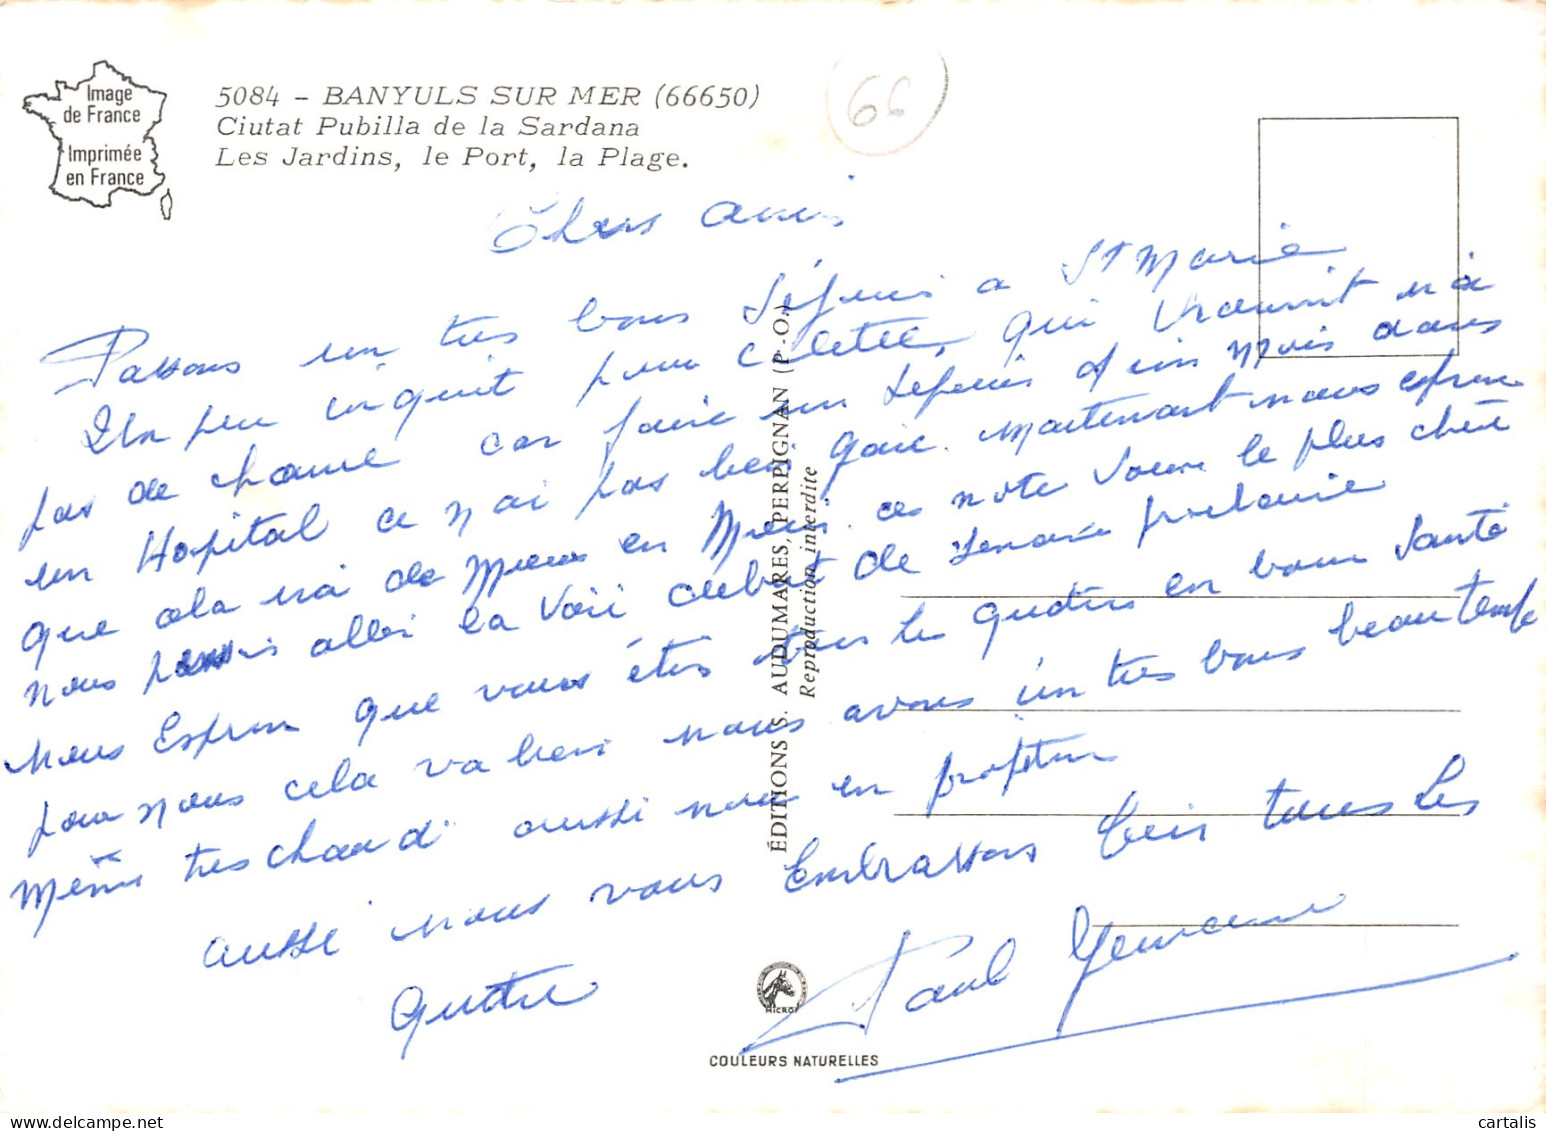 Image
de France
Imprimée
en France
5084 - BANYULS SUR MER (66650)
Ciutat Pubilla de la Sardana
Les Jardins, le Port, la Plage.
66
Chers amis
Passons un très bons séjour a St Marie
Un peu inquiet pour Colette, qui vraiment n'a
pas de chance car faire un séjour d'un mois dans
un Hopital ce n'ai pas bien gaie. Maintenant nous esperons
que cela irai de mieux en mieux. ces note voeux le plus chère
nous pensis aller la voir debut de semaine prochaine
nous esperon que vous étes tous les quatres en bonne santé
pour nous cela va bien nous avons un tres bons beau temps
même tres chaud aussi nous en profiton
aussi nous vous embrassons bien tous les
quatre
Paul
ÉDITIONS S. AUDUMARES, PERPIGNAN (P.-O.)
Reproduction interdite
MICRO
COULEURS NATURELLES
cartalis
www.delcampe.net